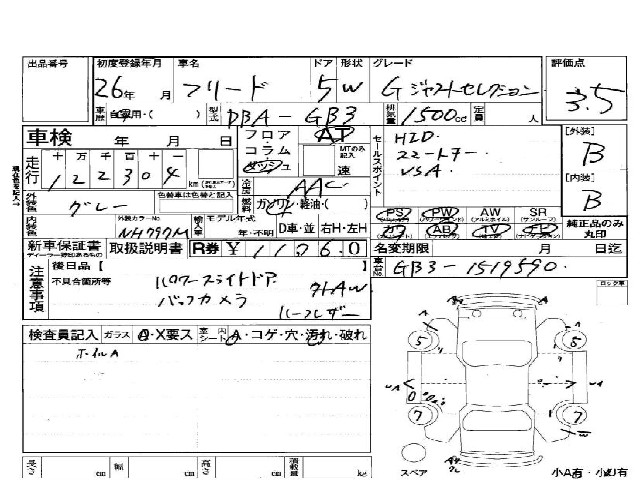 出品番号 初度登録年月 車名 ドア 形状 グレード 評価点
26年 月 フリード 5 W G ジャストセレクション 3.5
車歴 自家用・( ) 型式 DBA-GB3 排気量 1500cc 定員 人
車検 年 月 日 フロア・コラム・ダッシュ AT MTのみ記入 速 セールスポイント HID. [外装]
走行 十 万 千 百 十 一 B
122304 km VSA [内装]
外装色 グレー 色替車は色替と記入 冷房 AAC B
燃料 ガソリン・軽油・( ) PS PW AW SR
内装色 外装カラーNo. NH797M 輸入車 モデル年式 年・不明 D車・並 右H・左H カワ AB TV 純正品のみ丸印
新車保証書 取扱説明書 R券 ¥11060 名変期限 月 日迄
注意事項 後日品【 】 車台No. GB3-1519590.
不具合箇所等 パワースライドドア 外AW ロック車
バックカメラ ハーフレザー
検査員記入 ガラス A・X要ス 室内シート A・コゲ・穴・汚れ・破れ
ホイルA
5 5
A
7 7
W
スペア
長さ cm 幅 cm 高さ cm 積載量 kg 小A有・小U有